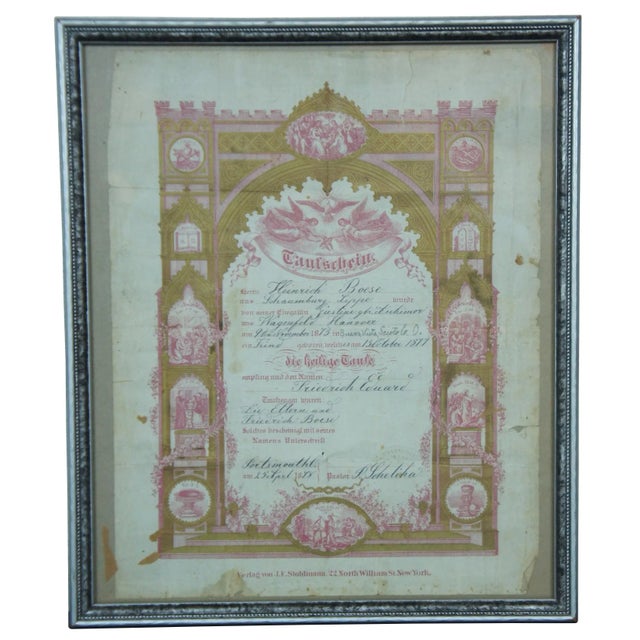 Taufschein.
Herrn Heinrich Boese
aus Schaumburg Lippe wurde
von seiner Ehegattin Justine gb.
aus Wagenfeld Hannover
am November 1873 in Scioto Co. O.
ein Kind geboren, welches am October 1877
die heilige Taufe
empfing und den Namen
Friedrich Eduard
Taufzeugen waren
Die Eltern und
Friedrich Boese
Solches bescheinigt mit seines
Namens Unterschrift
Portsmouth O
am April 1878 Pastor
Verlag von J.E. Stohlmann. 22 North William St. New York.